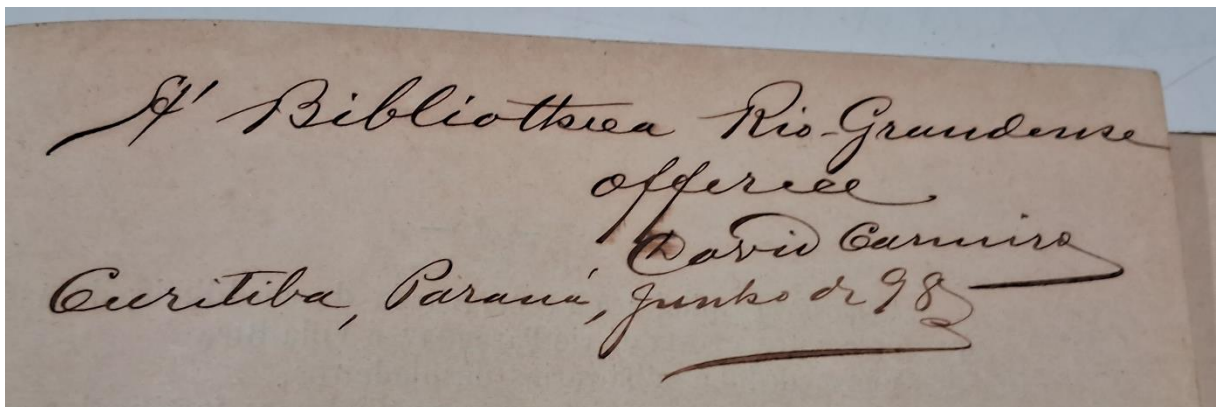 A' Bibliotheca Rio-Grandense
offerece
David Carneiro
Curitiba, Paraná, Junho de 98